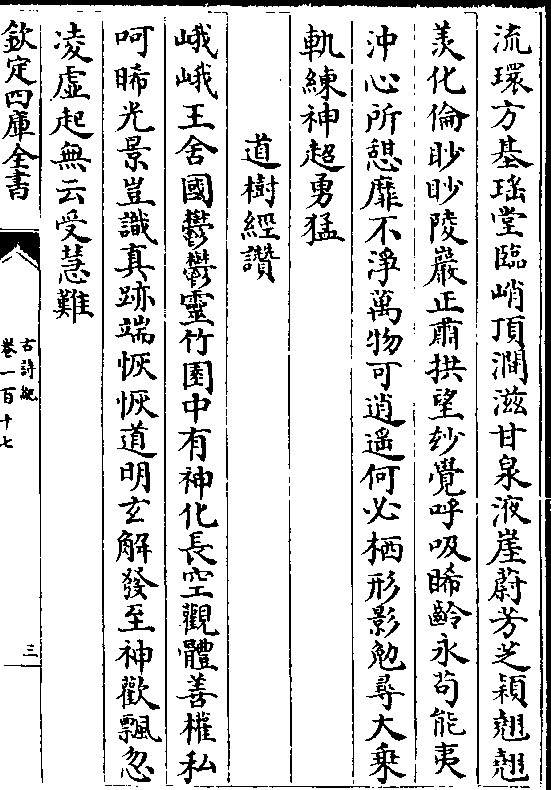 流環方基瑤堂臨峭頂澗滋甘泉液崖蔚芳芝穎翹翹
羨化倫眇眇陵巖正肅拱望妙覺呼吸晞齡永苟能夷
沖心所憩靡不淨萬物可逍遙何必栖形影勉尋大乗
軌練神超勇猛
道樹經讚
峨峨王舍國鬱鬱靈竹園中有神化長空觀體善權私
呵晞光景豈識真跡端恢恢道明玄解發至神歡飄忽
凌虛起無云受慧難
欽定四庫全書
古詩紀
卷一百十七
三